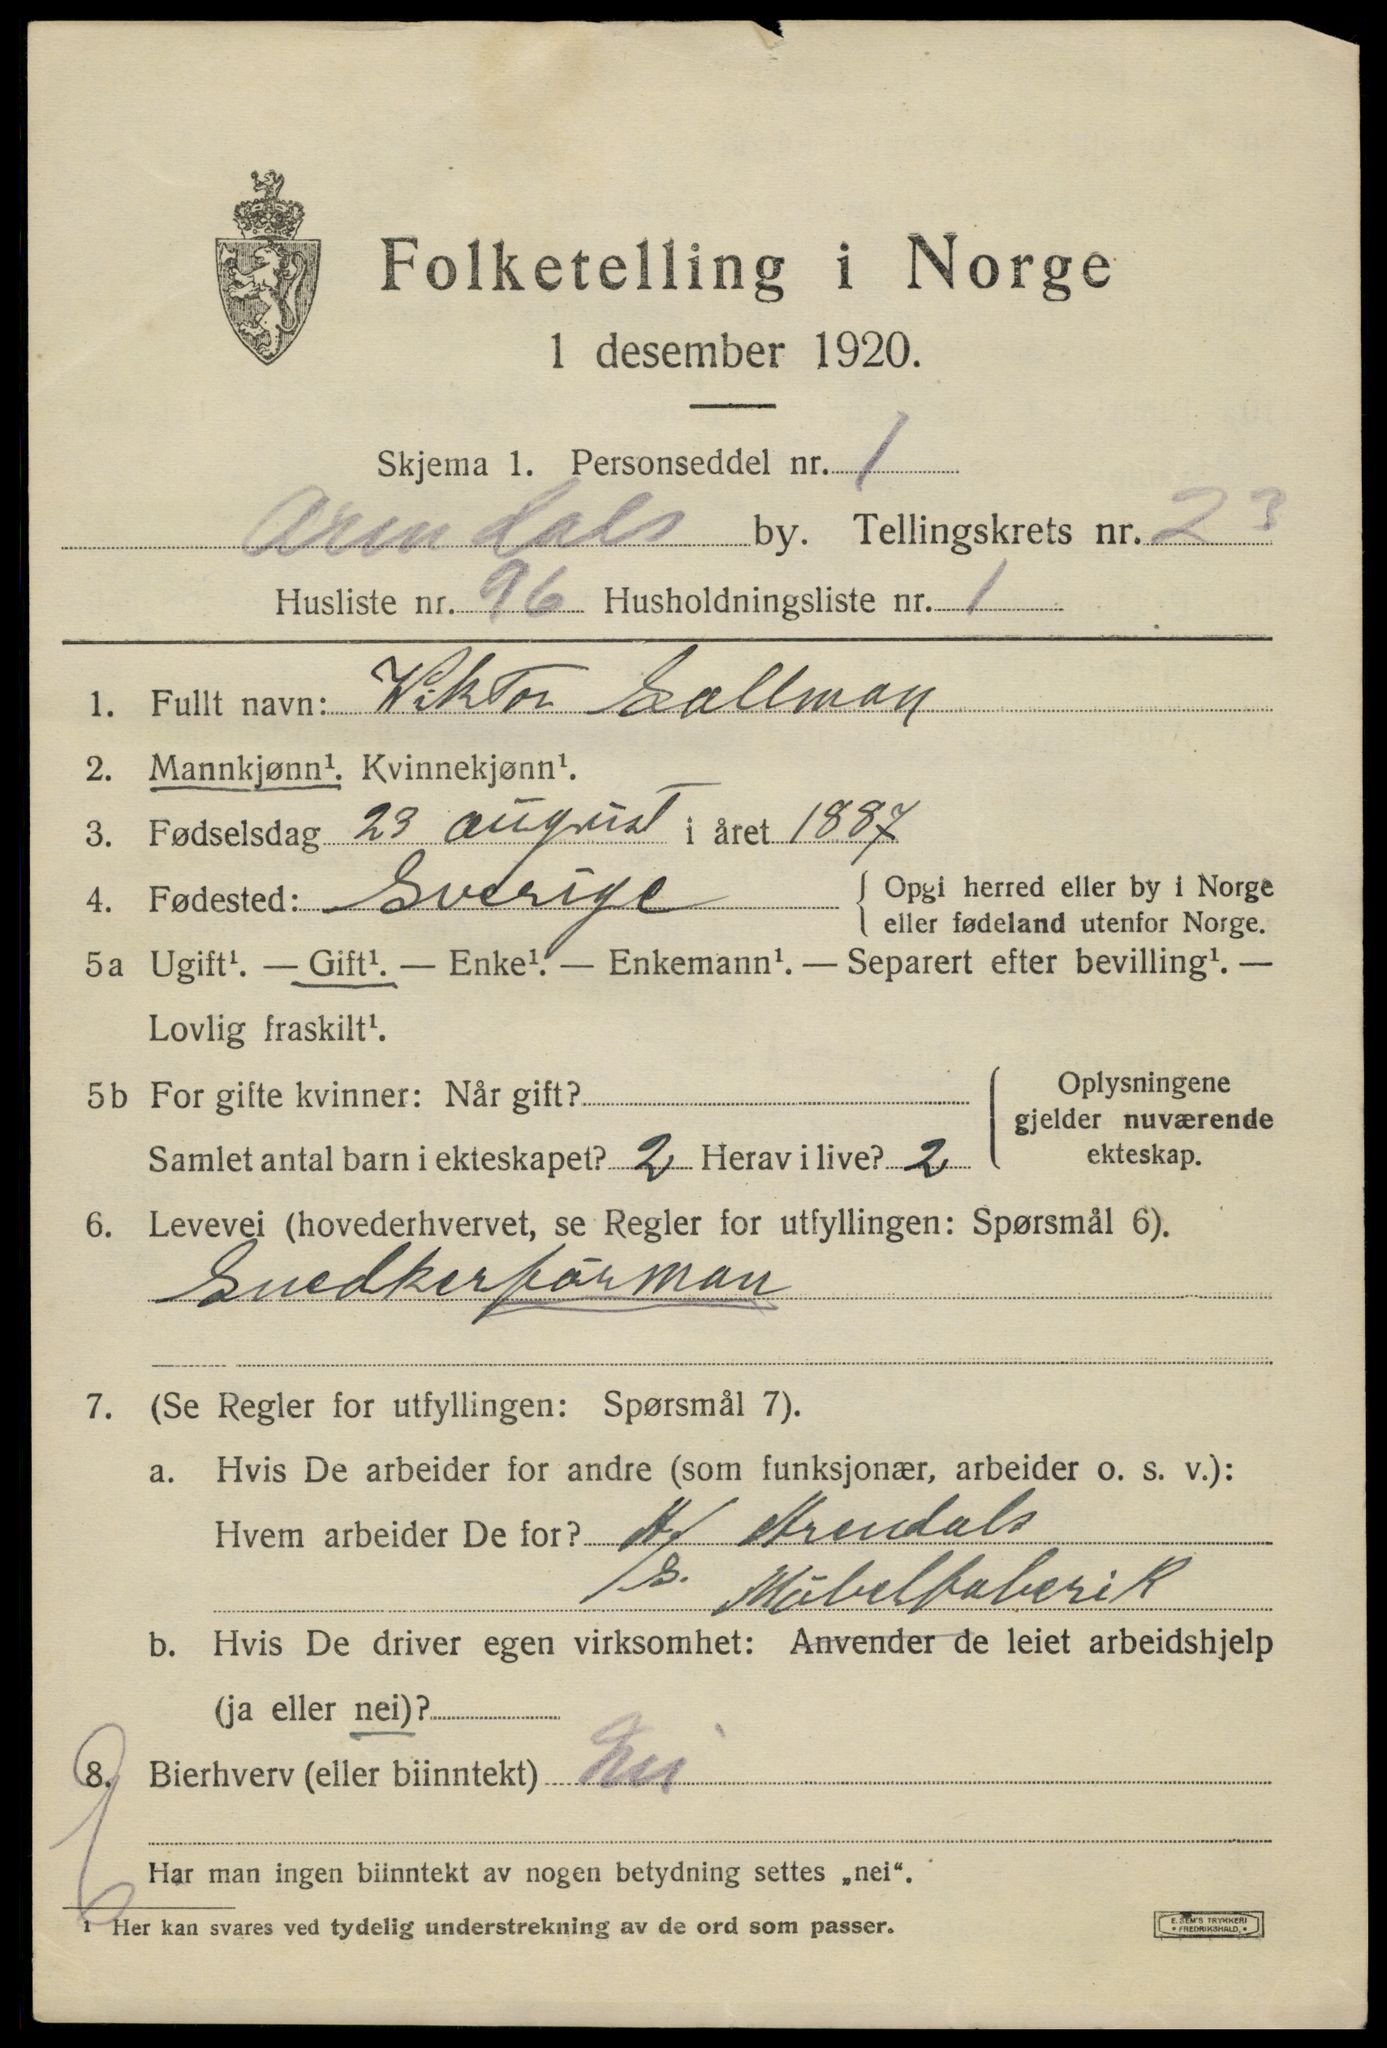 Folketelling i Norge
1 desember 1920.
Skjema 1. Personseddel nr. 1
Arendals by. Tellingskrets nr. 23
Husliste nr. 96 Husholdningsliste nr. 1
1. Fullt navn: Viktor Sallman
2. Mannkjønn¹. Kvinnekjønn¹.
3. Fødselsdag 23 august i året 1887
4. Fødested: Sverige { Opgi herred eller by i Norge
eller fødeland utenfor Norge.
5a Ugift¹. — Gift¹. — Enke¹. — Enkemann¹. — Separert efter bevilling¹. —
Lovlig fraskilt¹.
5b For gifte kvinner: Når gift?
Samlet antal barn i ekteskapet? 2 Herav i live? 2
Oplysningene
gjelder nuværende
ekteskap.
6. Levevei (hovederhvervet, se Regler for utfyllingen: Spørsmål 6).
Snedkerförman
7. (Se Regler for utfyllingen: Spørsmål 7).
a. Hvis De arbeider for andre (som funksjonær, arbeider o. s. v.):
Hvem arbeider De for? A/S. Arendals
Möbelfaberik
b. Hvis De driver egen virksomhet: Anvender de leiet arbeidshjelp
(ja eller nei)?
8. Bierhverv (eller biinntekt) Nei
Har man ingen biinntekt av nogen betydning settes „nei“.
¹ Her kan svares ved tydelig understrekning av de ord som passer.
E. SEM'S TRYKKERI
* FREDRIKSHALD. *